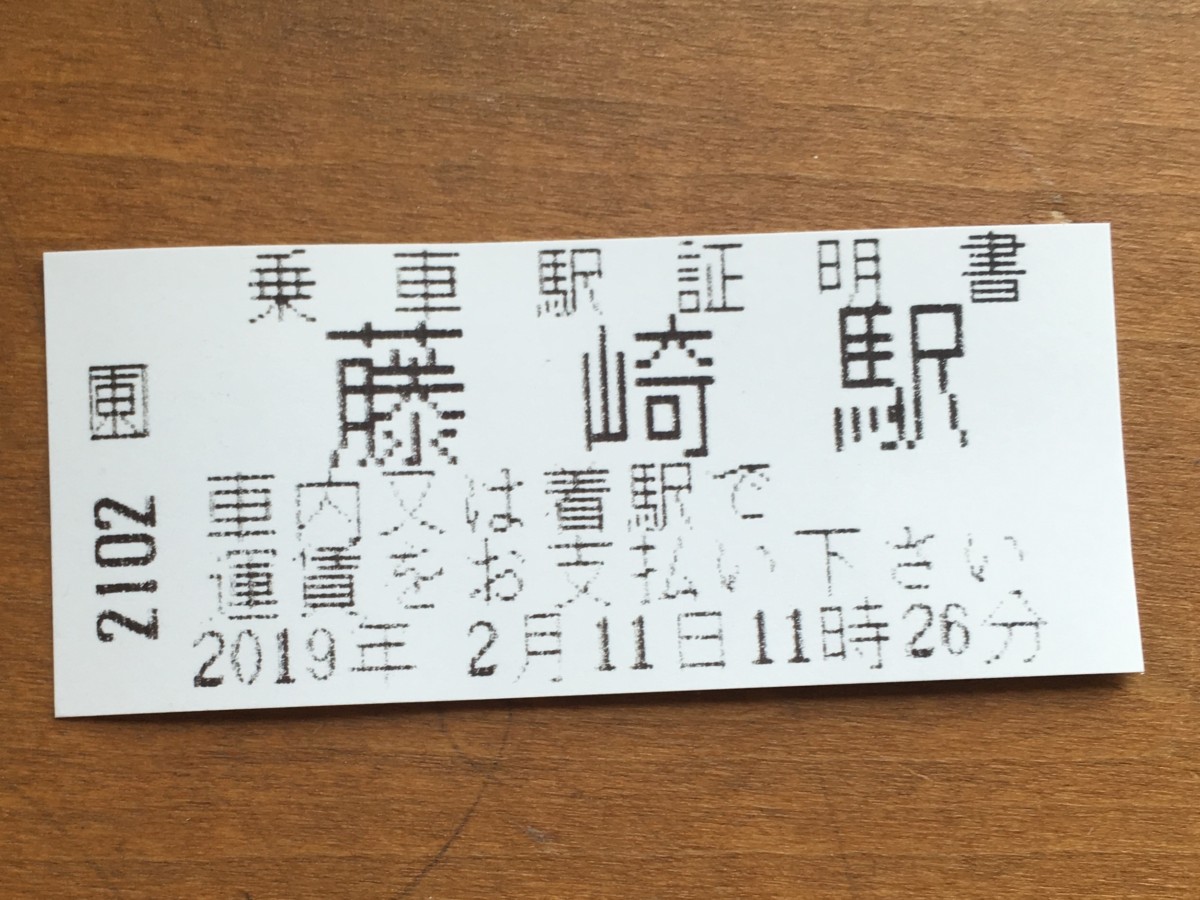 乗車駅証明書
藤崎駅
車内又は着駅で
運賃をお支払い下さい
2019年 2月11日11時26分
東
2102